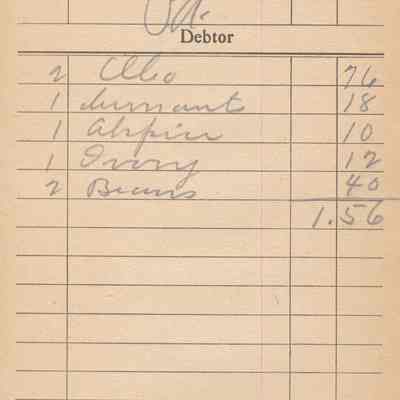 Pd.
Debtor
2 Oleo 76
1 currants 18
1 Aspirin 10
1 Ivory 12
2 Beans 40
1.56